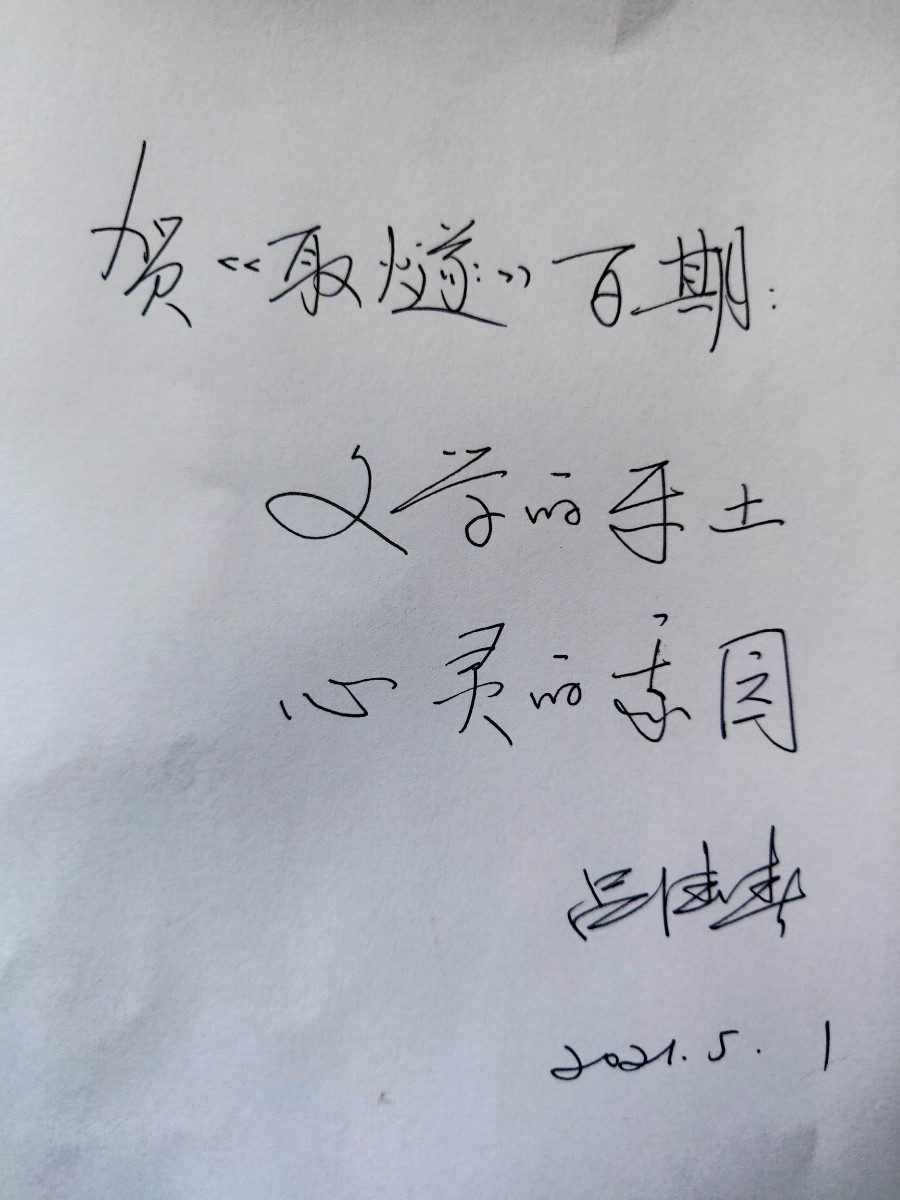 贺《取燧》百期：
文学的乐土
心灵的家园
吕健春
2021.5.1